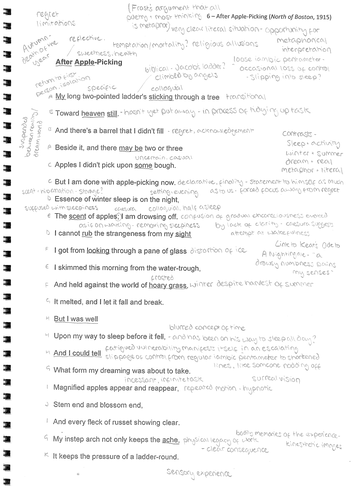 regret
limitations
(Frost) argument that all
poetry + most thinking
is metaphor)
6 – After Apple-Picking (North of Boston, 1915)
very clear literal situation - opportunity for
metaphorical
interpretation
Autumn-
reflective
temptation/mortality? religious allusions
loose iambic pentameter -
occasional loss of control
- slipping into sleep?
After Apple-Picking
biblical - Jacobs ladder?
climbed by angels
specific
colloquial
My long two-pointed ladder's sticking through a tree
transitional
Toward heaven still,
- hasn't yet put away - in process of tidying up task
And there's a barrel that I didn't fill
- regret, acknowledgement
Beside it, and there may be two or three
uncertain, casual
contrasts -
Sleep + activity
winter + summer
dream + real
metaphor + literal
Apples I didn't pick upon some bough.
But I am done with apple-picking now.
declarative, finality - statement to himself as much
as to us - forced focus away from regret
Essence of winter sleep is on the night,
The scent of apples: I am drowsing off.
I cannot rub the strangeness from my sight
attempt at wakefulness
I got from looking through a pane of glass
distortion of ice
Links to Keats 'Ode to
A Nightingale' - 'a
drowsy numbness pains
my senses'
I skimmed this morning from the water-trough,
frosted
And held against the world of hoary grass.
winter despite harvest of summer
It melted, and I let it fall and break.
But I was well
blurred concept of time
Upon my way to sleep before it fell,
- and has been on his way to sleep all day?
And I could tell
What form my dreaming was about to take.
incessant, infinite task
surreal vision
Magnified apples appear and reappear,
repeated motion - hypnotic
Stem end and blossom end,
And every fleck of russet showing clear.
bodily memories of the experience -
kinesthetic images
My instep arch not only keeps the ache,
physical legacy of work
- clear consequence
It keeps the pressure of a ladder-round.
Sensory experience